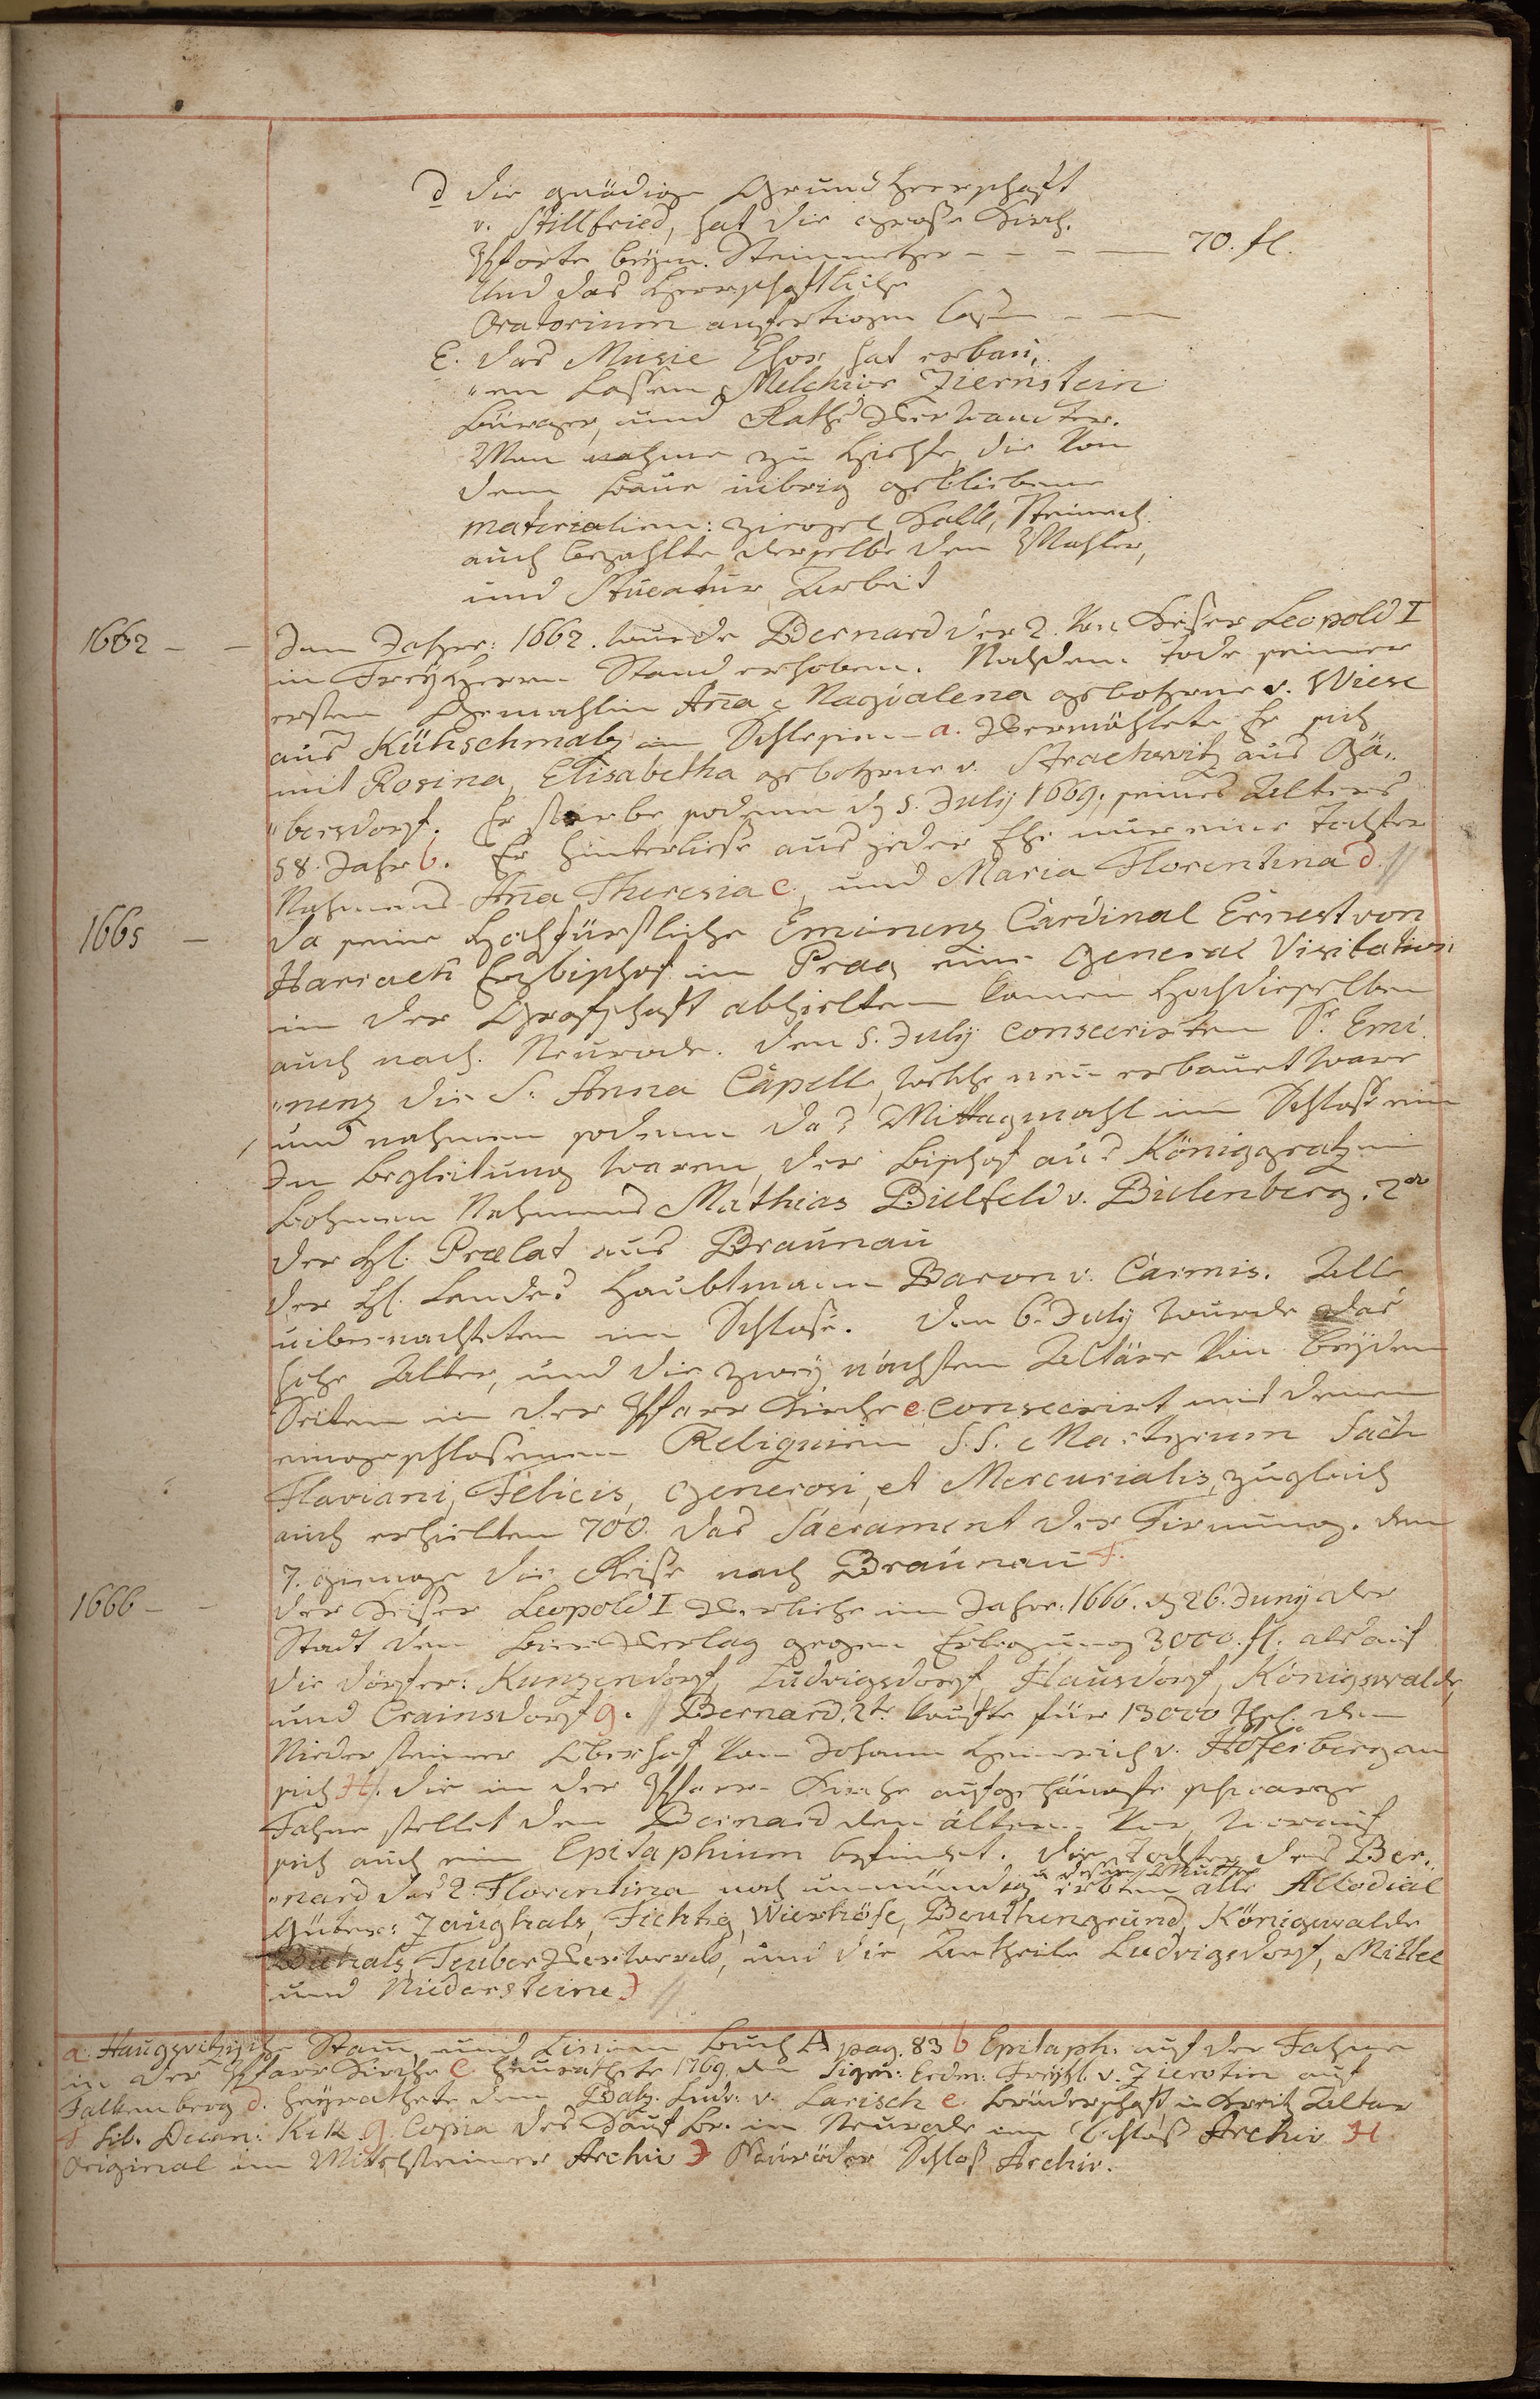 d die gnädige Grundherrschaft
v. Stillfried, hat die große Kirch.
Pforte beym. Steinmetzer - - - — 70. fl.
Und das Herrschaftliche
Oratorium anfertigen laß - —
E. das Music Chor hat erbau„
„en laßen Melchior Ziernstein
Bürger, und Raths Verwandter.
Man nahme zu Hielfe, die von
dem baue übrig gebliebene
materialien: Ziegel, Kalk,
auch bezahlte derselbe den Mahler,
und Stucatur Arbeit
1662 - - Im Jahre: 1662. wurde Bernard der 2. von Keiser Leopold I
in FreyHerrn Stand erhoben. Nachdem tode seiner
ersten Gemahlin Aña Magdalena gebohrne v. Wiese
aus Kühschmalz in Schlesien - a. Vermählete Er sich
mit Rosina, Elisabetha gebohrne v. Strachwitz aus Gä„
„bersdorf. Er starbe sodenn dz 5. July 1669. seines Alters
58. Jahr b. Er hinterließe aus jeder Ehe nur eine Tochter
Nahmens Aña Theresia c., und Maria Florentina d. //
1665 - da seine Hochfürstliche Eminenz Cardinal Ernest von
Harrach Erzbischof in Prag eine General Visitation
in der Grafschaft abhielten kamen Hochdieselben
auch nach. Neurode. den 5. July consecrirten Sr. Emi„
„nenz die S. Anna Capelle, welche neu erbauet ware
und nahmen sodenn das Mittagmahl im Schloße ein
In begleitung waren, der Bischof aus Königgratz in
Bohmen Nahmens Mathias Bielfeld v. Bielenberg. 2
der H. Prælat aus Braunau
der H. Landes Haubtmann Baron v. Carmis. Alle
uiber-nachteten im Schloße. den 6. July wurde das
hohe Alter, und die zwey nächsten Altäre von beyden
Seiten in der Pfarr Kirche e. consecrirt mit denen
eingeschloßenen Reliquien S.S. Martyrum
Flaviani, Felicis, Generosi, et Mercurialis, zugleich
auch erhielten 700. das Sacrament der Firmung. den
7. gienge die Reise nach Braunau f.
1666 - - der Keiser Leopold I Verliehe im Jahre. 1666. dz 26. Juny der
Stadt den bier Verlag gegen Erlegung 3000. fl. als auf
die Dörfer: Kunzendorf, Ludvigsdorf, Hausdorf, Königswalde,
und Crainsdorf g. // Bernard. 2te kaufte für 13000 thl. den
Nieder steiner Oberhof von Johann Heinrich v. Höferberg an
sich H. die in der Pfarr- Kirche aufgehängte schwarze
Fahne stellet den Bernard den ältern. Vor, worauf
sich auch ein Epitaphium befindet. die Tochter des Ber„
„nard des 2. Florentina noch unmündig u deßen Mutter erbten alle Allodial
Güter: Zaughals, Fichtig, Wierhöfe, Beuthengrund, Königswalde
Biehals, Teuber Vorwerk, und die Antheile Ludvigsdorf, Mittel
und Niedersteine J //
a. Haugwitzische Stam, und Linien buch A pag. 83 b Epitaph. auf der Fahne
in der Pfarr Kirche C. heurathete 1769. den Sigm: Erdm: Freyhl. v. Zierotin auf
Falkenberg d. Heyrathete den Balz. Ludv. v. Larisch e. Brüderschaft u Kreitz Altar
f. Lib. Decan: g. Copia des Kauf br. in Neurode im Schloß Archiv H
Original im Mittelsteiner Archiv J Neuröder Schloß Archiv.